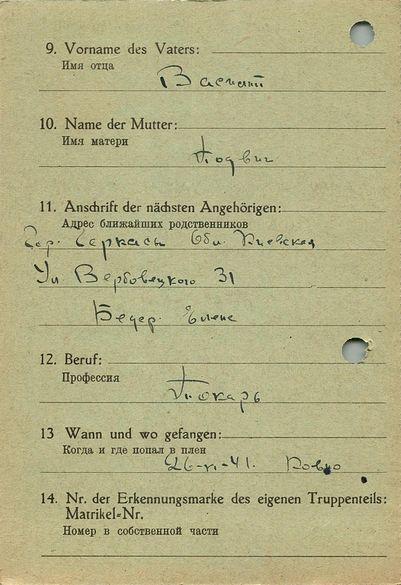 9. Vorname des Vaters:
Имя отца
Василий
10. Name der Mutter:
Имя матери
11. Anschrift der nächsten Angehörigen:
Адрес ближайших родственников
Гор. Черкасы Обл. Киевская
Ул Вербовецкого 31
Елене
12. Beruf:
Профессия
Токарь
13 Wann und wo gefangen:
Когда и где попал в плен
26-VI-41. Ровно
14. Nr. der Erkennungsmarke des eigenen Truppenteils:
Matrikel=Nr.
Номер в собственной части